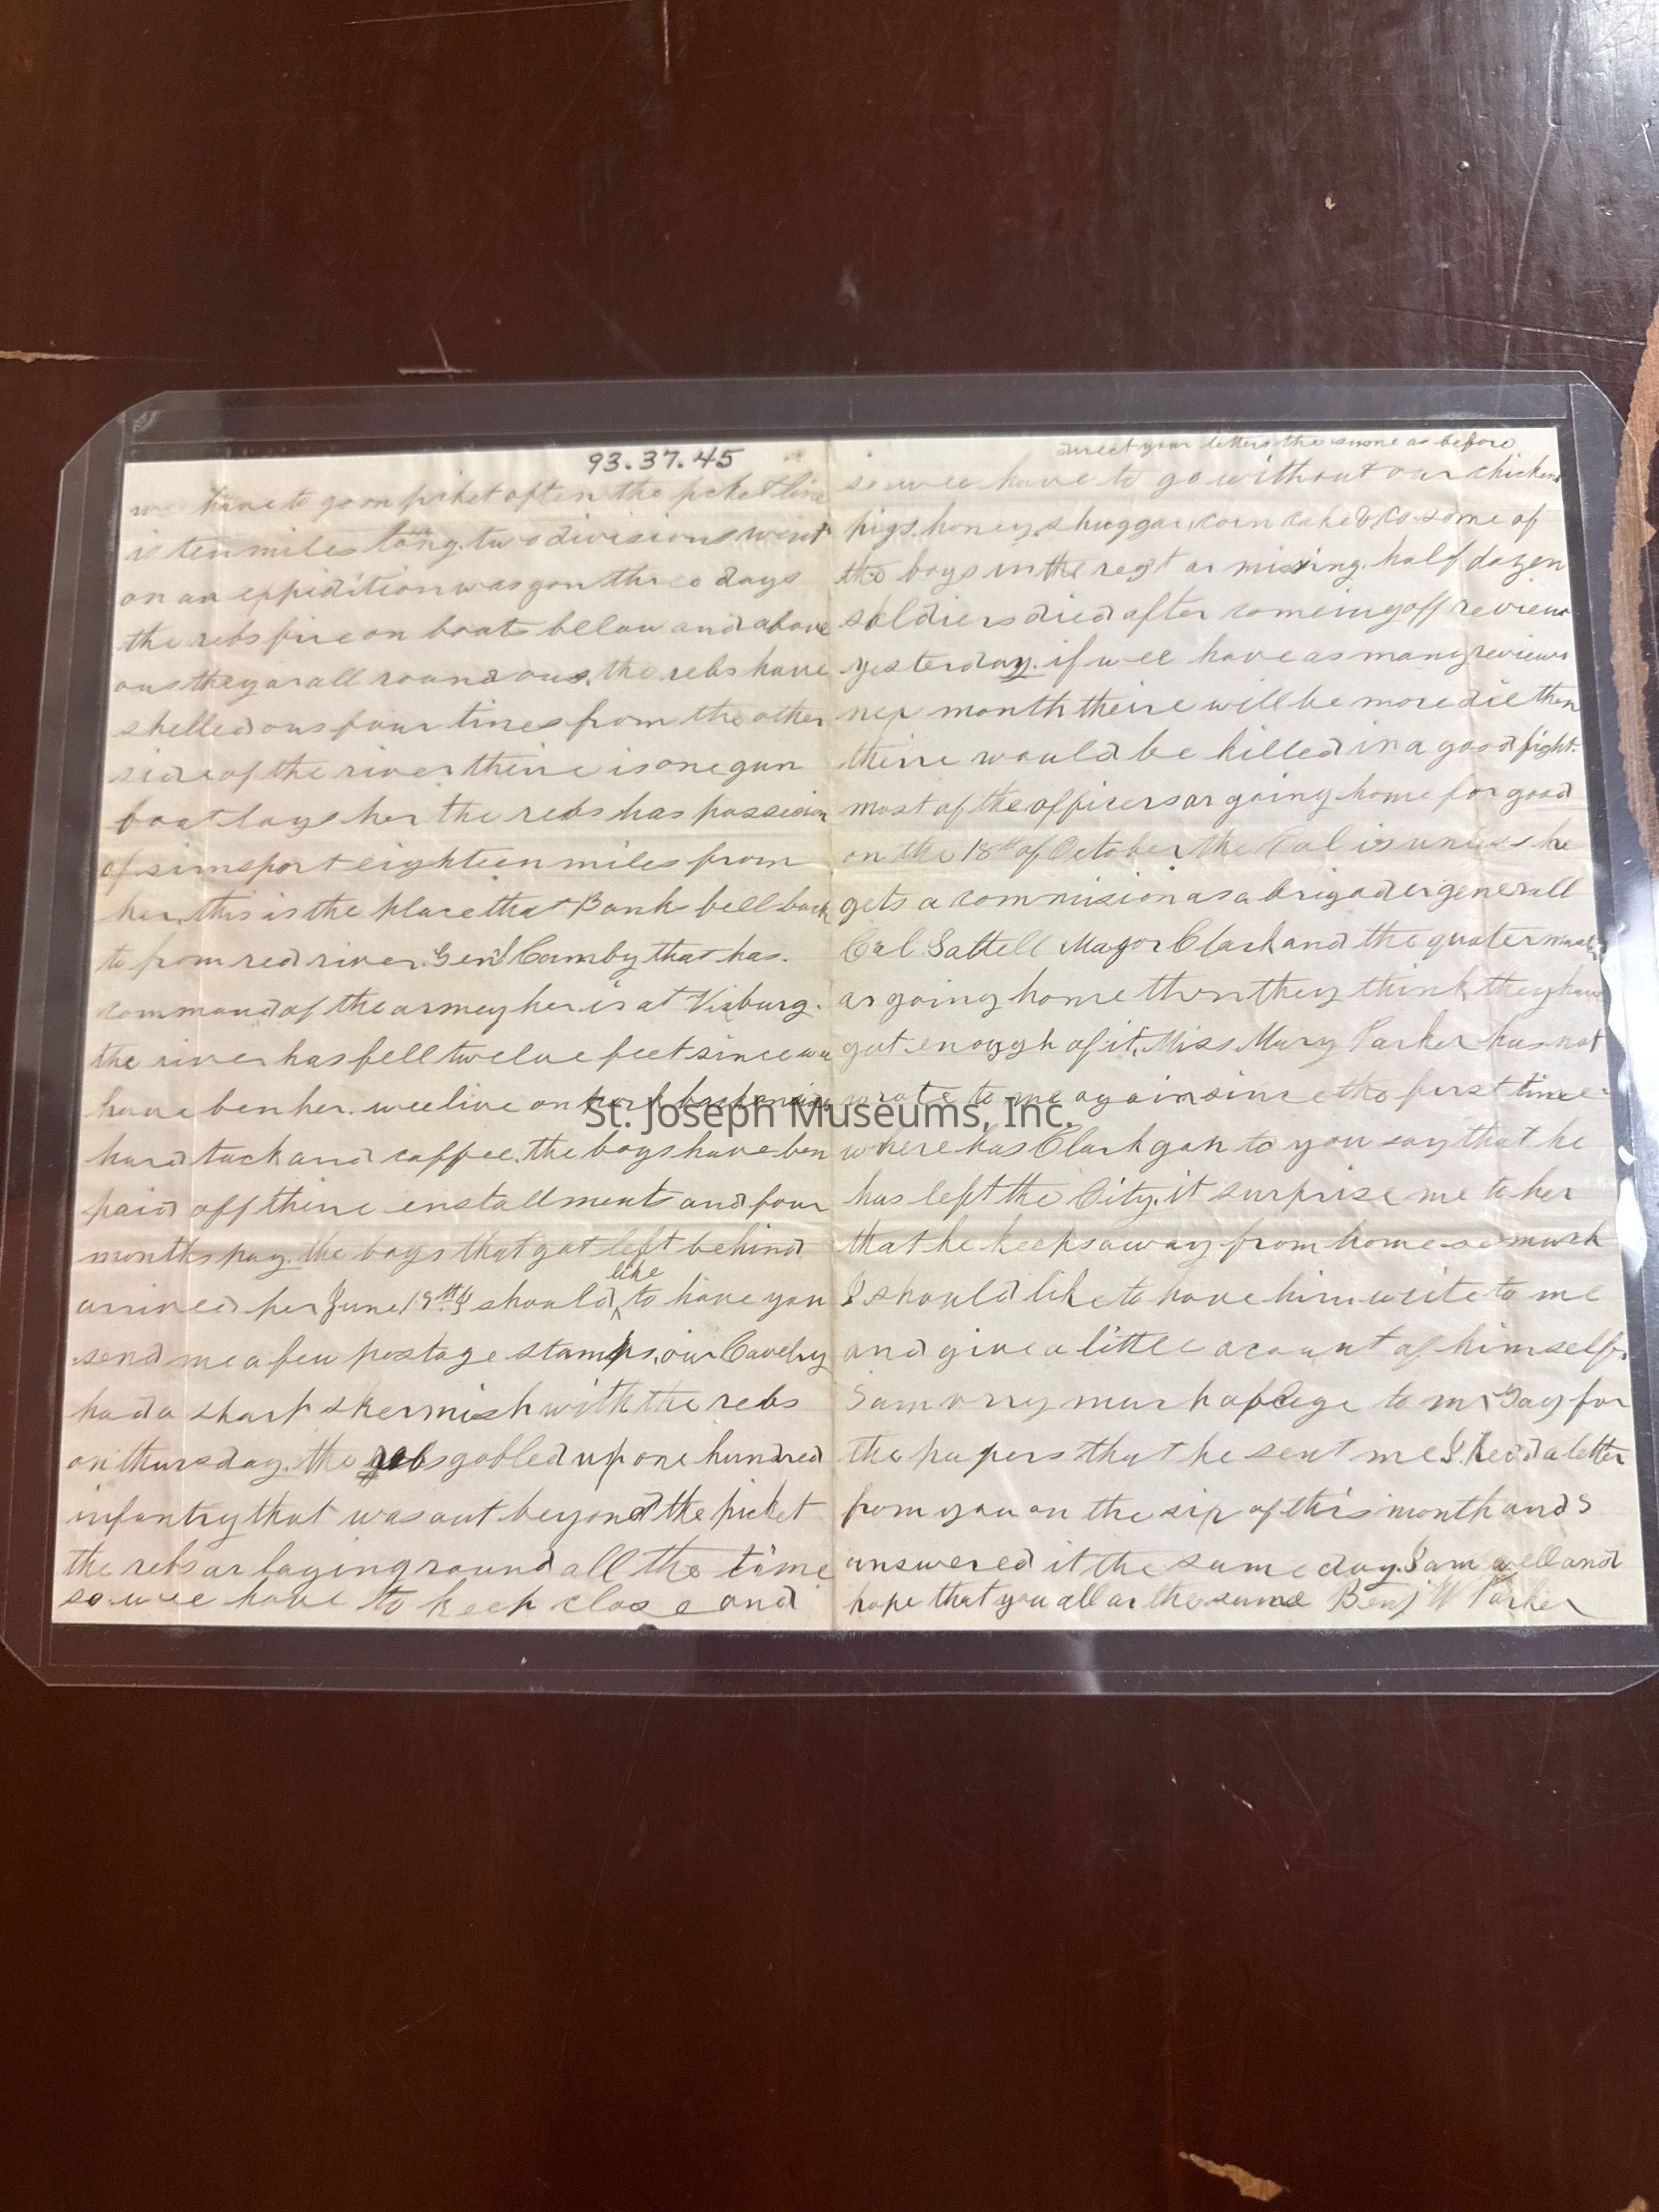 93.37.45
we have to go on picket often the picket line
is ten miles long. two divisions went
on an eppidition was gon three days
the rebs fire on boats bellow and above
ous they ar all round ous. the rebs have
shelled ous four times from the other
side of the river thire is one gun
boat lays her the rebs has possesion
of simsport eighteen miles from
her. this is the place that Banks fell back
to from red river. Genl Camby that has.
command of the armey her. is at Vixburg.
the river has fell twelve feet since we
have ben her. wee live on
hard tack and coffee. the boys have ben
paid off thire enstallments and four
months pay. the boys that got left behind
arrived her June 19th I should like to have you
send me a few postage stamps, our Cavelry
had a sharp skermish with the rebs
on thursday. the rebs gobled up one hundred
infantry that was out beyond the picket
the rebs ar laying round all the time
so wee have to keep close and
direct your letters the same as before
so wee have to go without our chickens
pigs. honey. shuggar, corn cake & co. some of
the boys in the regt ar missing. half dozen
soldiers died after comeing off review
yesterday. if wee have as many reviews
nex month theire will be more die then
thire would be killed in a good fight.
most of the officers ar going home for good
on the 18th of October the Col is unless he
gets a commision as a brigadeigenerall
Col. Sattell Mayor Clark and the quatermaster
ar going home then they think they have
got enough of it. Miss Mary Parker has not
wrote to me again since the first time
where has Clark gon to you say that he
has left the City. it surprise me to her
that he keeps away from home so much
I should like to have him write to me
and give a little acount of himself.
I am very much oblege to mr Gay for
the papers that he sent me I. Recd a letter
from you on the six of this month and I
answered it the same day. I am well and
hope that you all ar the same Benj W Parker
St. Joseph Museums, Inc.